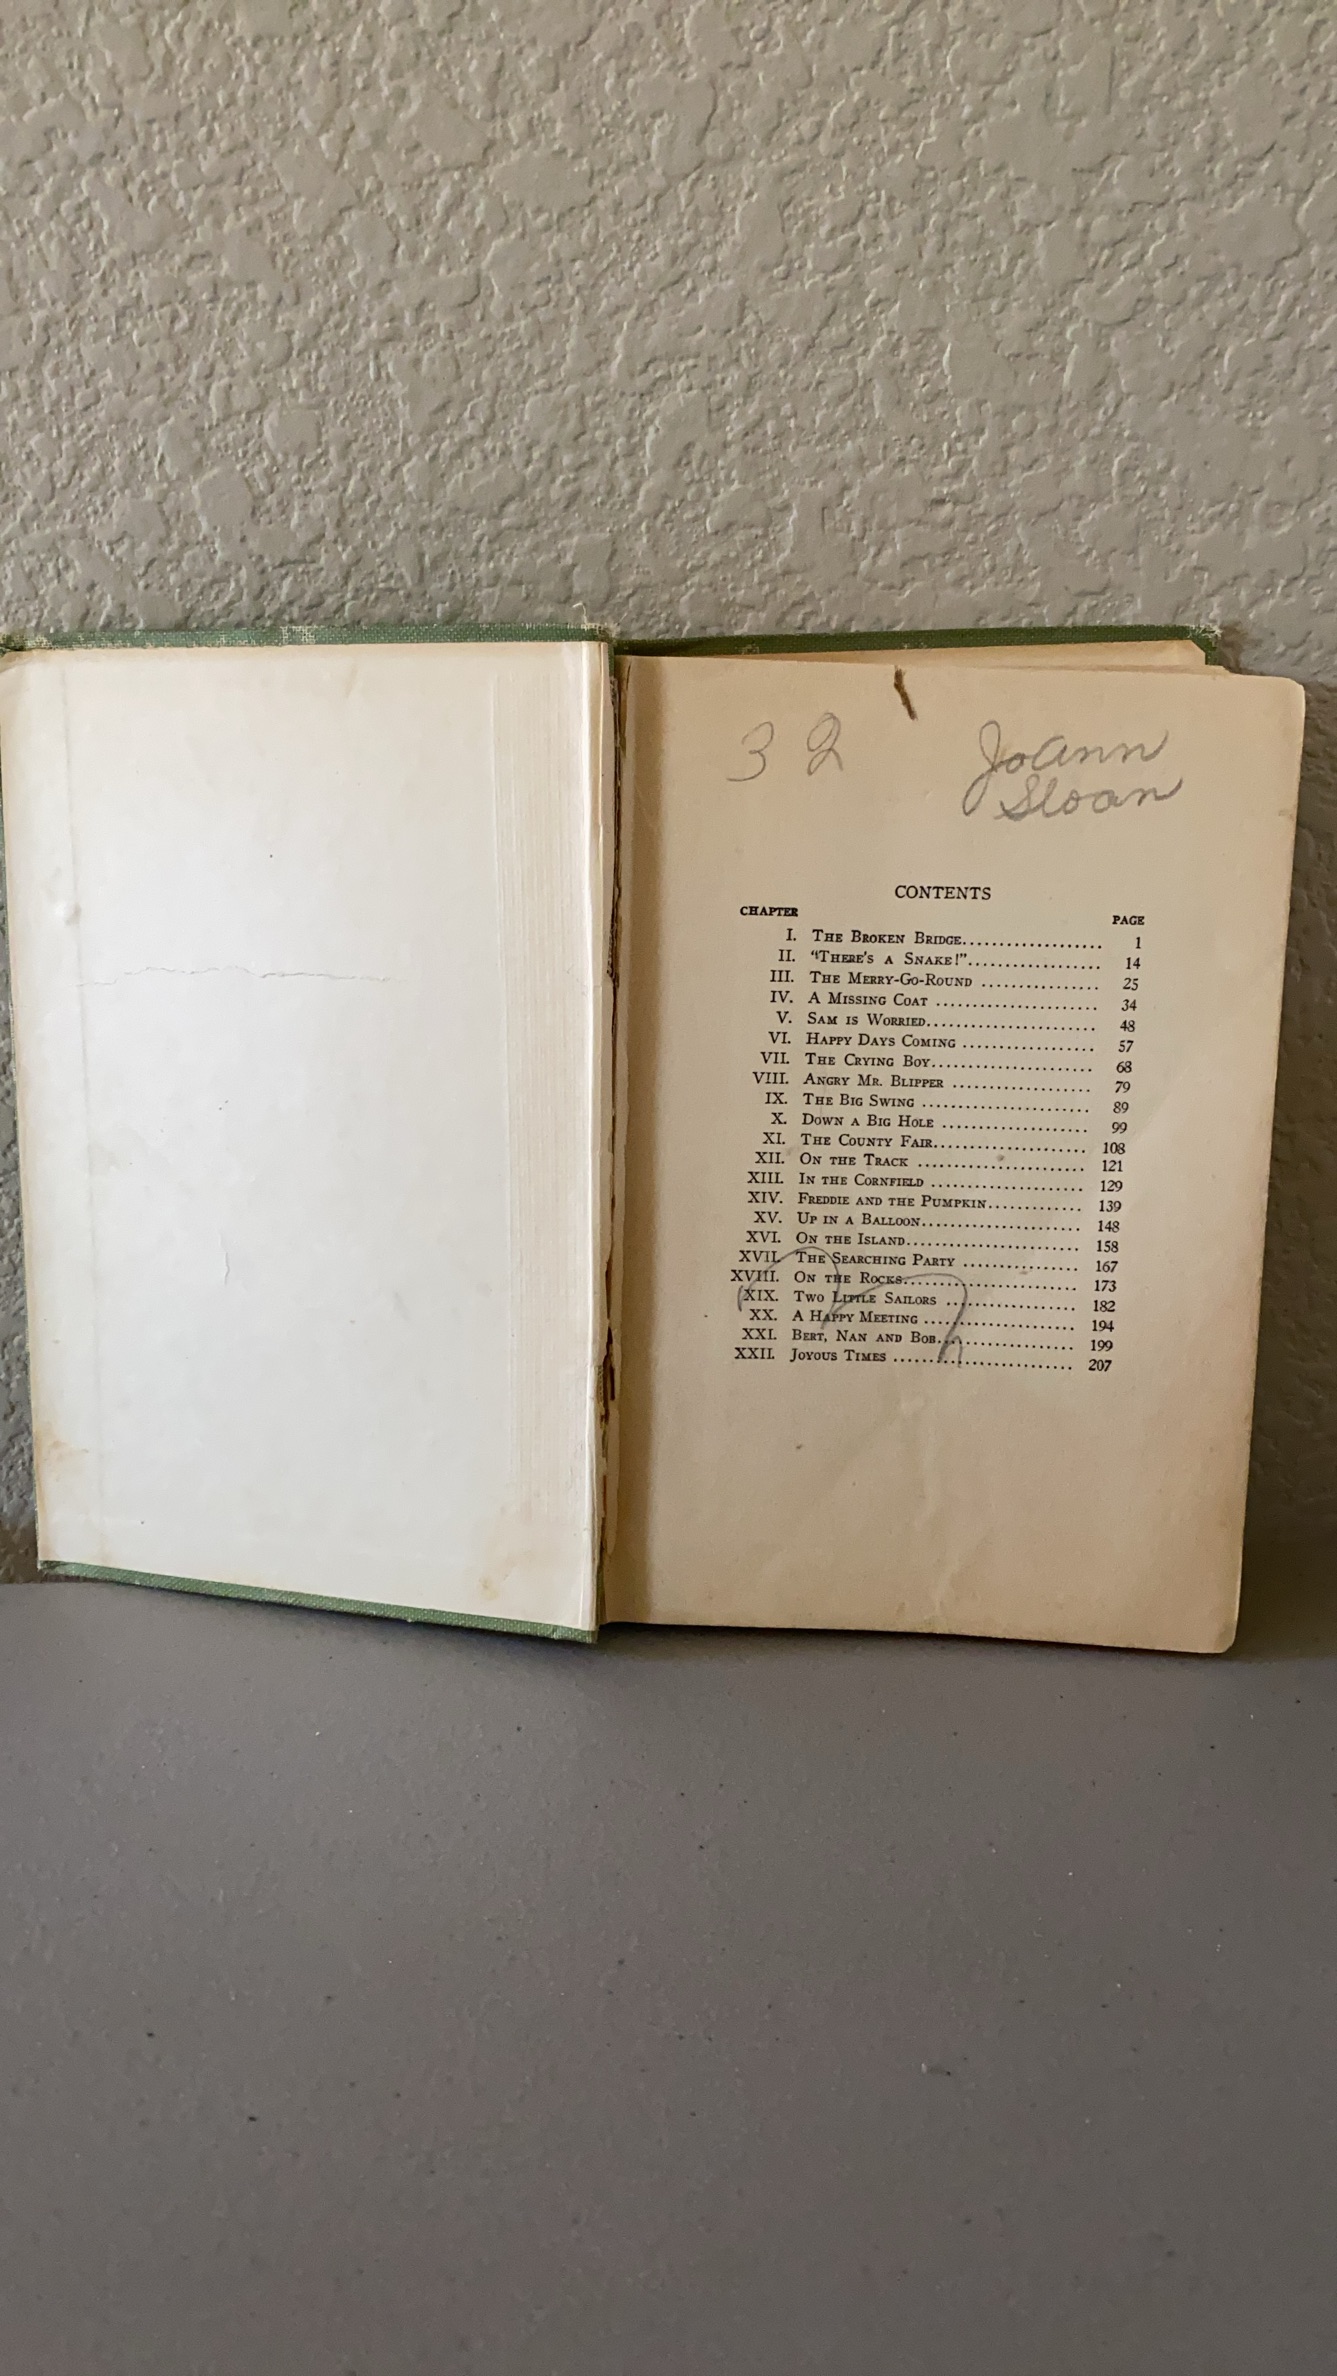 3 2 JoAnn
Sloan
CONTENTS
CHAPTER PAGE
I. THE BROKEN BRIDGE................... 1
II. "THERE'S A SNAKE!".................. 14
III. THE MERRY-GO-ROUND ................ 25
IV. A MISSING COAT ...................... 34
V. SAM IS WORRIED....................... 48
VI. HAPPY DAYS COMING .................. 57
VII. THE CRYING BOY...................... 68
VIII. ANGRY MR. BLIPPER ................... 79
IX. THE BIG SWING ....................... 89
X. DOWN A BIG HOLE .................... 99
XI. THE COUNTY FAIR..................... 108
XII. ON THE TRACK ....................... 121
XIII. IN THE CORNFIELD ..................... 129
XIV. FREDDIE AND THE PUMPKIN............. 139
XV. UP IN A BALLOON...................... 148
XVI. ON THE ISLAND........................ 158
XVII. THE SEARCHING PARTY ................ 167
XVIII. ON THE ROCKS........................ 173
XIX. TWO LITTLE SAILORS .................. 182
XX. A HAPPY MEETING ..................... 194
XXI. BERT, NAN AND BOB................... 199
XXII. JOYOUS TIMES ......................... 207